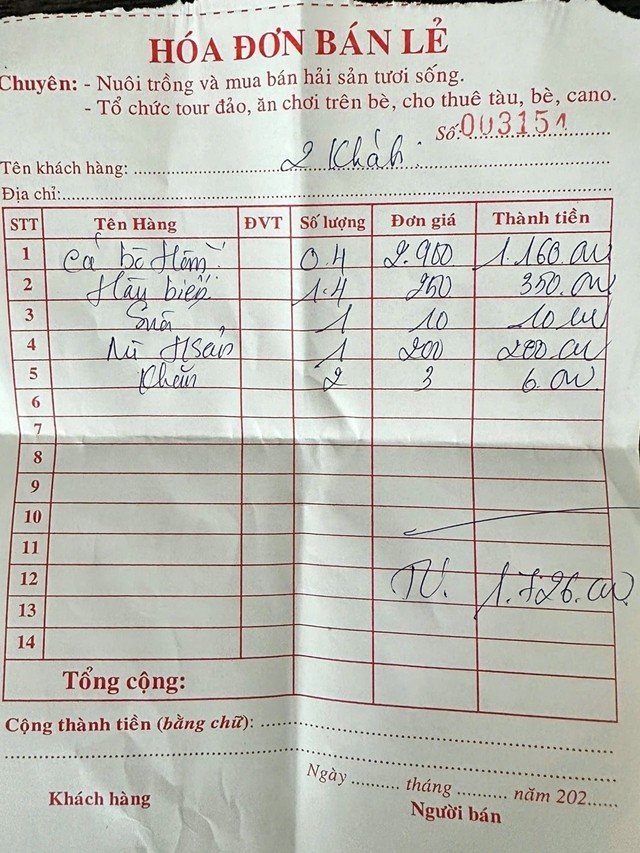 HÓA ĐƠN BÁN LẺ
Chuyên: - Nuôi trồng và mua bán hải sản tươi sống.
- Tổ chức tour đảo, ăn chơi trên bè, cho thuê tàu, bè, cano.
Số: 003151
Tên khách hàng: 2 Khách
Địa chỉ:
STT Tên Hàng ĐVT Số lượng Đơn giá Thành tiền
1 Cá bò Hòm 0.4 2.900 1.160.000
2 Hàu biển 1.4 250 350.000
3 1 10 10.000
4 1 200 200.000
5 Khăn 2 3 6.000
6
7
8
9
10
11
12 1.726.000
13
14
Tổng cộng:
Cộng thành tiền (bằng chữ):
Ngày tháng năm 202
Khách hàng Người bán